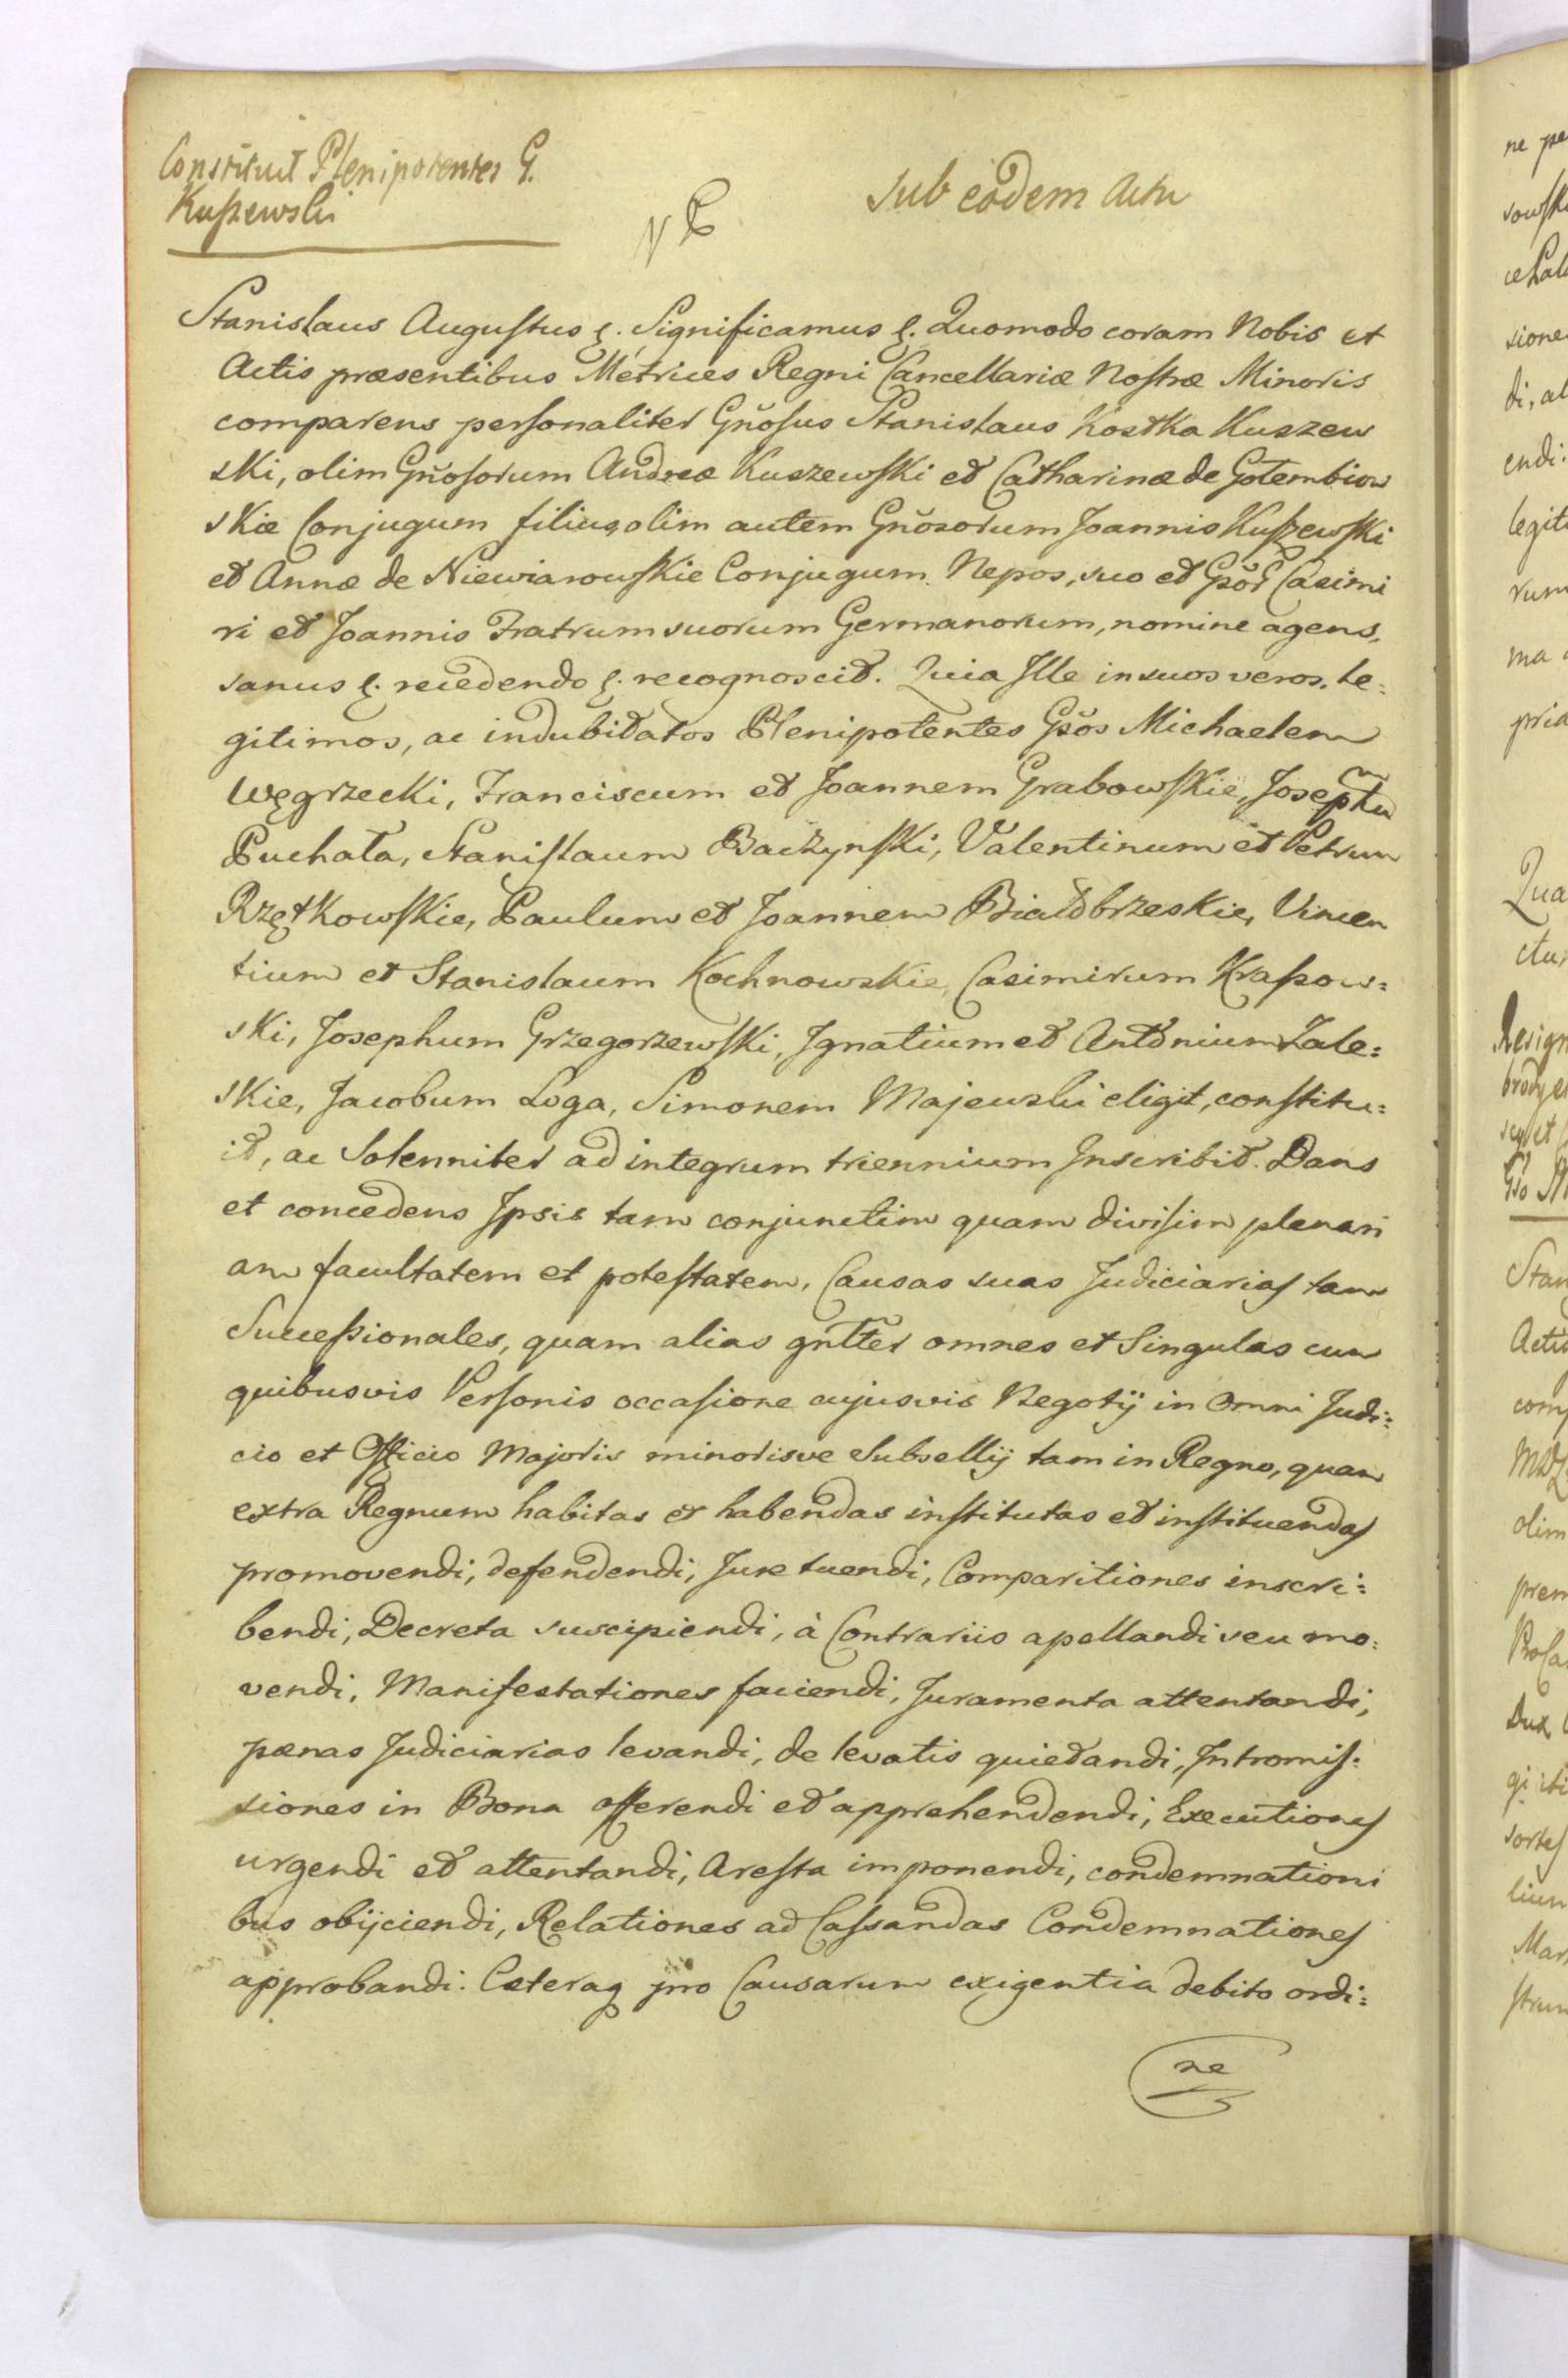 Constituit Plenipotentes G.
Kuszewski
Sub eodem Actu
Stanislaus Augustus &. Significamus &. Quomodo coram Nobis et
Actis præsentibus Metrices Regni Cancellariæ Nostræ Minoris
comparens personaliter Gñosus Stanislaus Kostka Kuszew
ski, olim Gñosorum Andreæ Kuszewski et Catharinæ de Gołembiow
skie Conjugum filius, olim autem Gñosorum Joannis Kuszewski
et Annæ de Niewiarowskie Conjugum Nepos, suo et Casimi
ri et Joannis Fratrum suorum Germanorum, nomine agens,
sanus &. recedendo &. recognoscit. Quia Ille in suos veros, le:
gitimos, ac indubitatos Plenipotentes Gsos Michaelem
Węgrzecki, Franciscum et Joannem Grabowskie, Josephũ
Puchała, Stanislaum Baczynski, Valentinum et Petrum
Rzętkowskie, Paulum et Joannem Białobrzeskie, Vincen
tium et Stanislaum Kochnowskie, Casimirum Kraszow:
ski, Josephum Grzegorzewski, Ignatium et Antonium Zale:
skie, Jacobum Loga, Simonem Majewski eligit, constitu:
it, ac Solenniter ad integrum triennium Inscribit. Dans
et concedens Ipsis tam conjunctim quam divisim plenari
am facultatem et potestatem, Causas suas Judiciarias tam
Successionales, quam alias gñlter omnes et Singulas cum
quibusvis Personis occasione cujusvis Negotij in Omni Judi:
cio et Officio Majoris minorisve Subsellij tam in Regno, quam
extra Regnum habitas et habendas institutas et instituendas
promovendi, defendendi, Jure tuendi, Comparitiones inscri:
bendi, Decreta suscipiendi, à Contrariis apellandi seu mo:
vendi, Manifestationes faciendi, Juramenta attentandi,
pænas Judiciarias levandi, de levatis quietandi, Intromis:
siones in Bona offerendi et apprehendendi, Executiones
urgendi et attentandi, Aresta imponendi, condemnationi
bus obijciendi, Relationes ad Cassandas Condemnationes
approbandi. Cæteraq pro Causarum exigentia debito ordi:
ne